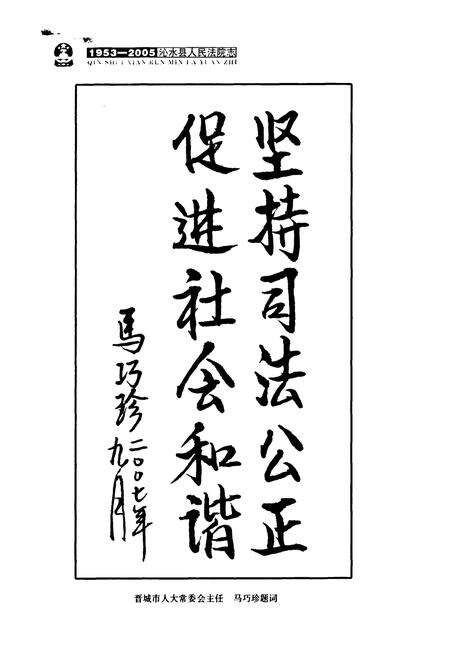 1953—2005沁水县人民法院志
QIN SHUI XIAN REN MIN FA YUAN ZHI
坚持司法公正
促进社会和谐
马巧珍二〇〇七年
九月
晋城市人大常委会主任 马巧珍题词